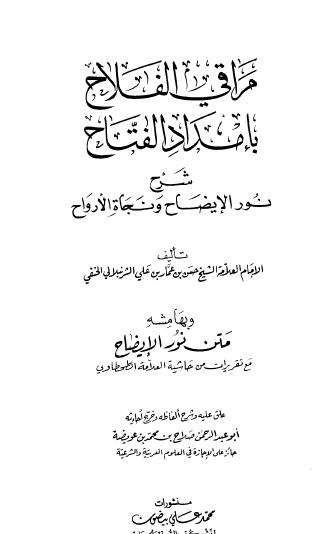 مَراقي الفَلاح
بإمْدَادِ الفتَّاح
شَرح
نُور الإيضَاح وَنجَاة الأرواح
تأليف
الإمَام العلاّمة الشيخ حسَن بن عمَّار بن علي الشرنبلالي الحنفي
وبهَامشِه
مَتن نُورُ الإيضَاح
مَع تقريرات مِن حَاشِية العلاّمة الطحطاوي
علق عليه وشرح ألفاظه وخرج أحاديثه
أبو عبد الرحمن صَلاح بن محمّد بن عويضة
حائز على الإجازة في العلوم العربية والشرعيّة
منشورات
محمد علي بيضون